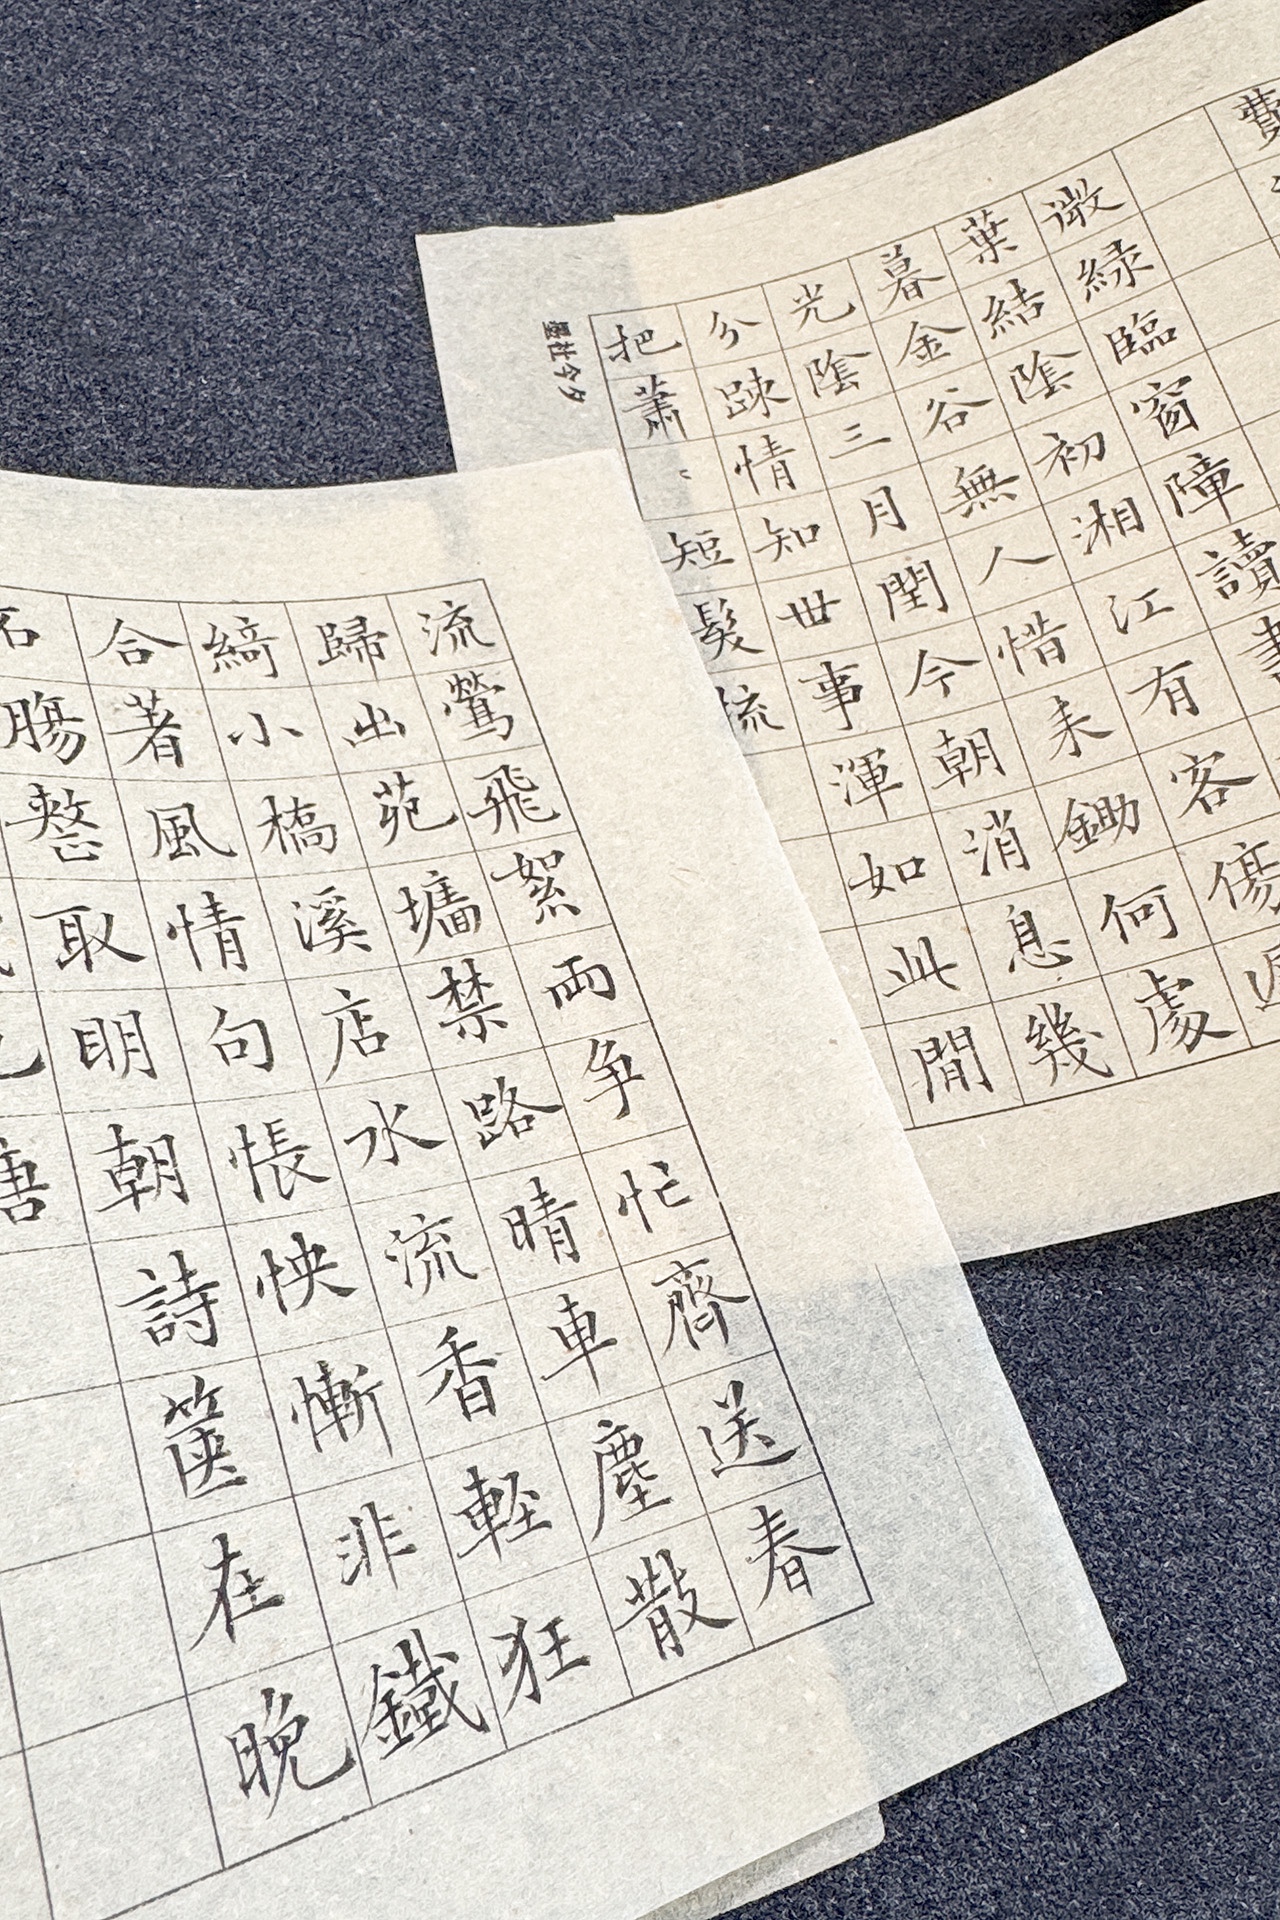 費
微緑臨窗障讀書
葉結陰初湘江有客傷遲
暮金谷無人惜耒鋤何處
光陰三月閏今朝消息幾
分踈情知世事渾如此間
把蕭〻短髮梳
墨社今夕
流鶯飛絮兩争忙齊送春
歸出苑墻禁路晴車塵散
綺小橋溪店水流香軽狂
合著風情句悵怏慚非鐵
石腸整取明朝詩篋在晚
唐